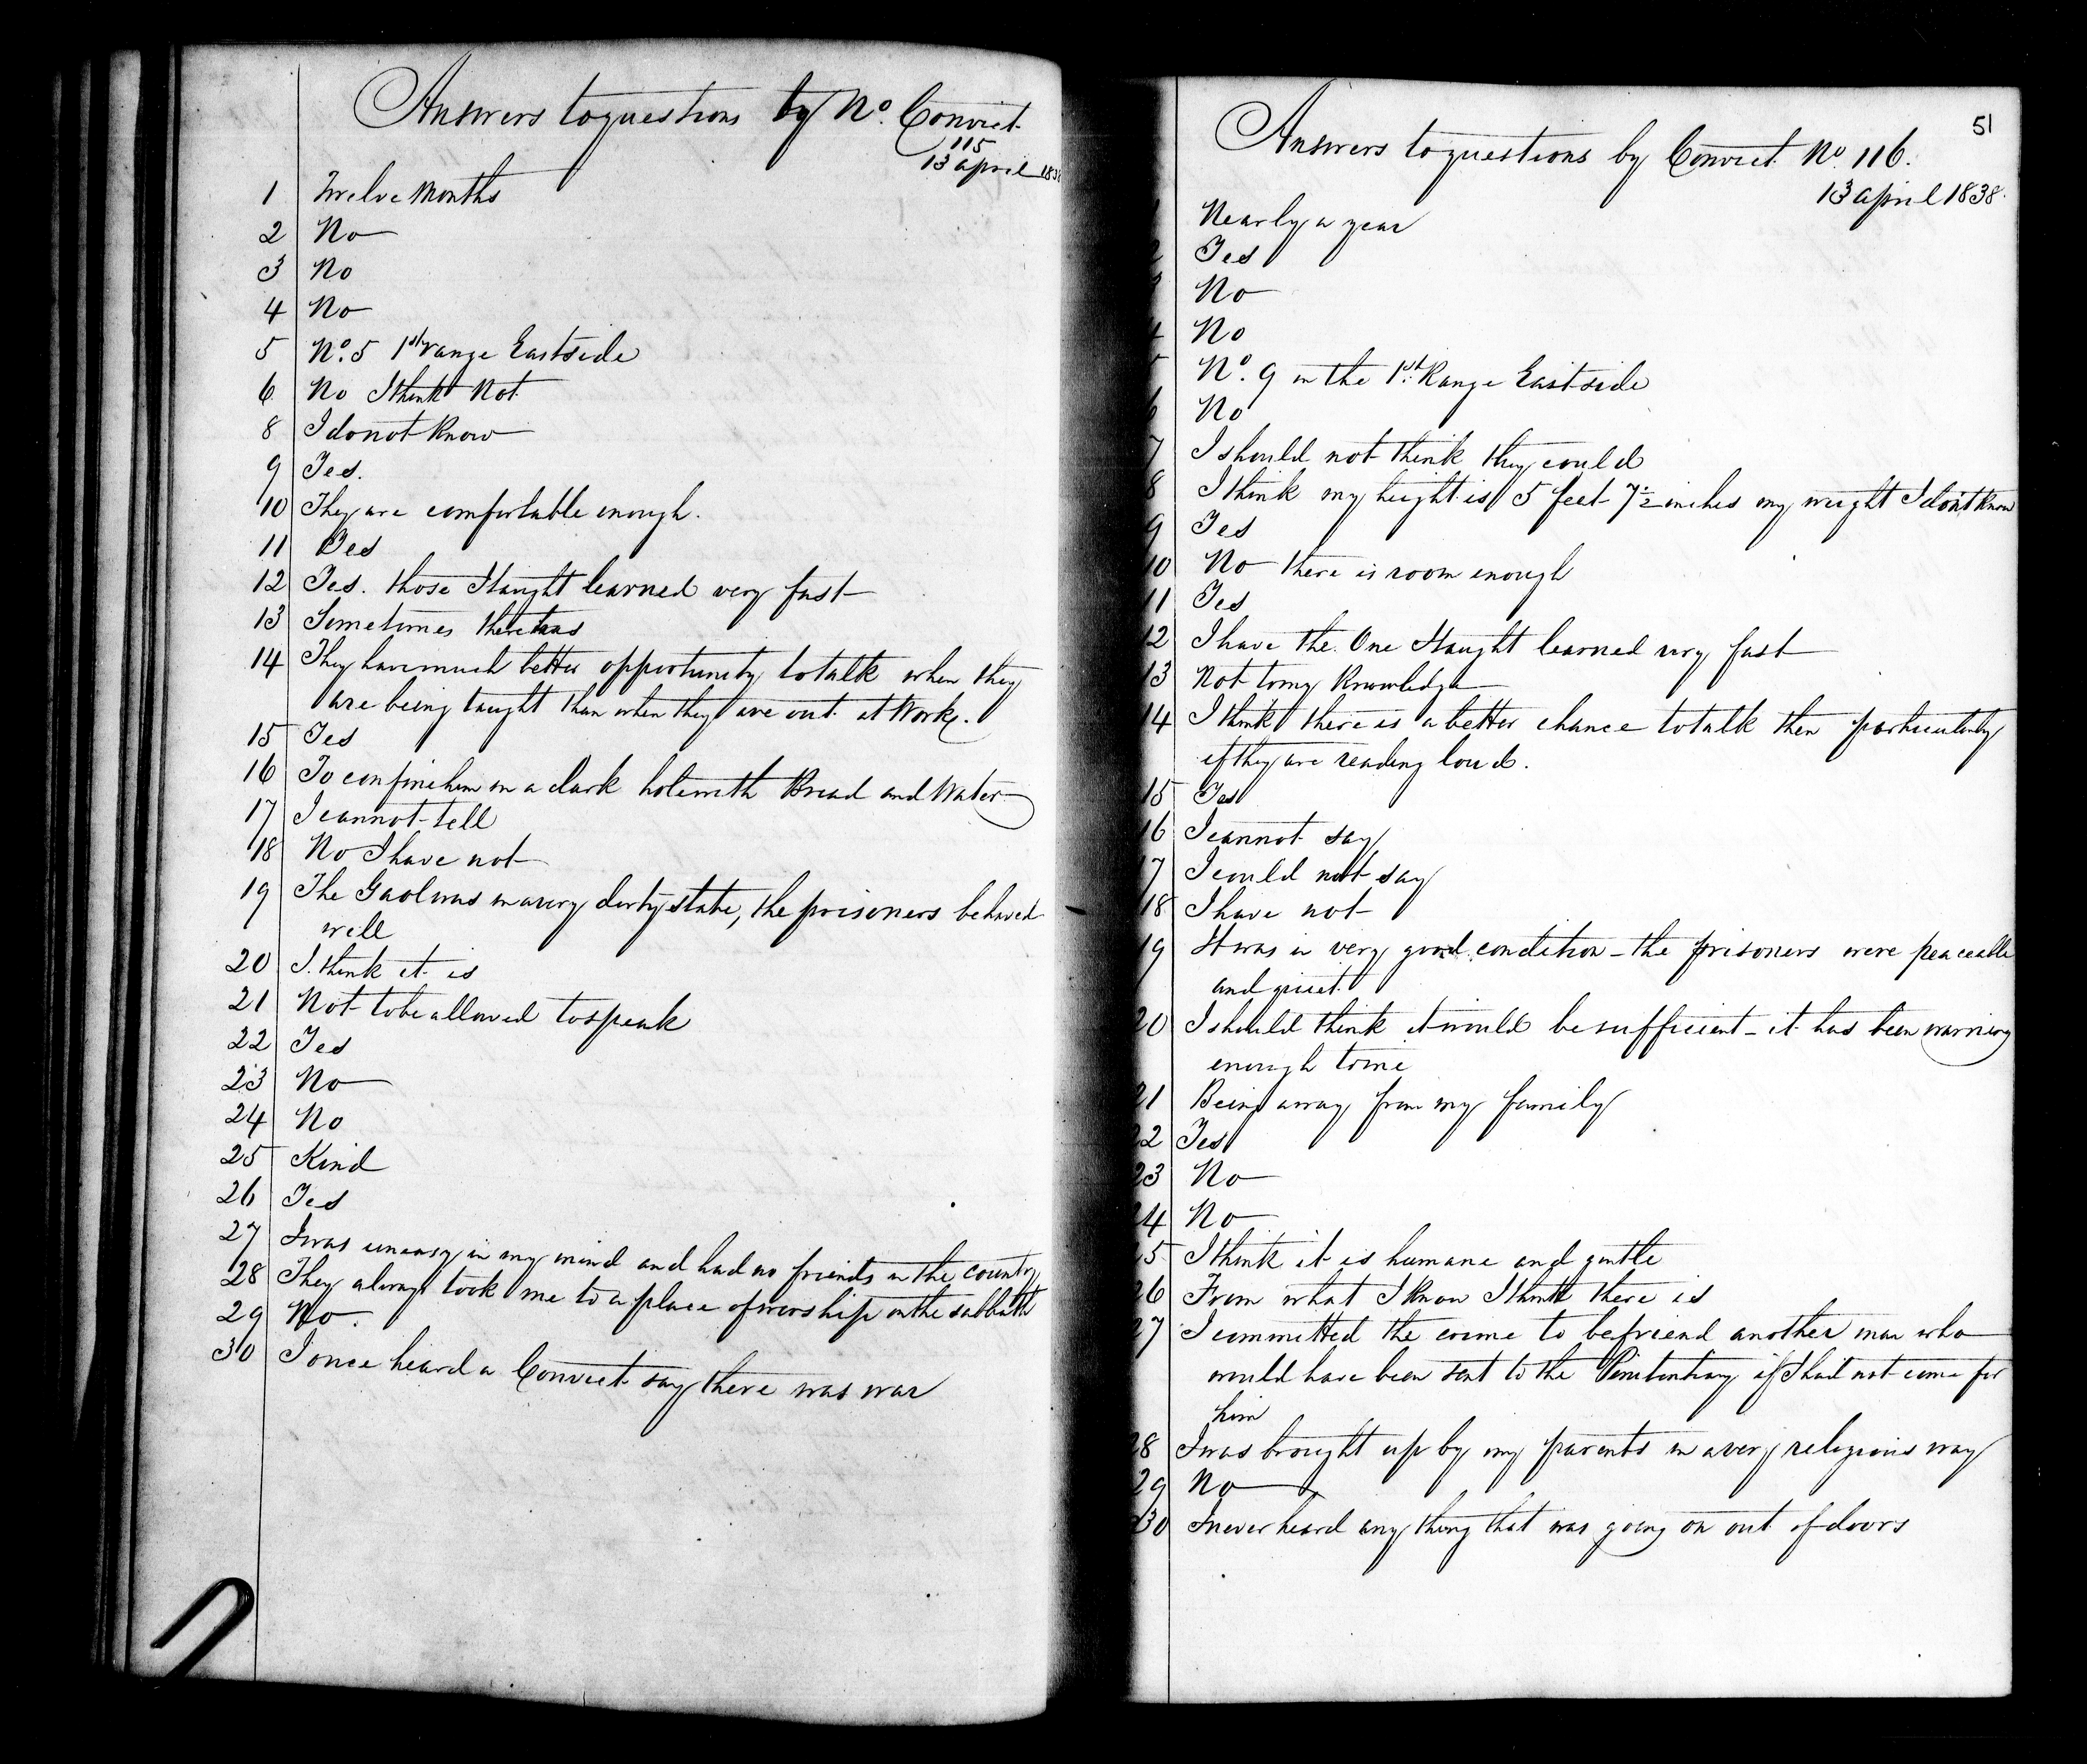 Answers to questions by No. Convict
115
13 april 1838
1 Twelve Months
2 No
3 No
4 No
5 No. 5 1st range Eastside
6 No I think Not
8 I do not Know
9 Yes.
10 They are comfortable enough.
11 Yes
12 Yes. those I taught learned very fast
13 Sometimes there was
14 They have much better opportunity to talk when they
are being taught than when they are out at Work.
15 Yes
16 To confine him in a dark hole with Bread and Water
17 I cannot tell
18 No I have not
19 The Gaol was in a very dirty state, the prisoners behaved
well
20 I think it is
21 Not to be allowed to speak
22 Yes
23 No
24 No
25 Kind
26 Yes
27 I was uneasy in my mind and had no friends in the country
28 They always took me to a place of worship on the sabbath
29 No.
30 I once heard a Convict say there was war
51
Answers to questions by Convict No. 116.
13 april 1838.
1 Nearly a year
2 Yes
3 No
4 No
5 No. 9 in the 1st Range Eastside
6 No
7 I should not think they could
8 I think my height is 5 feet 7½ inches my weight I dont know
9 Yes
10 No there is room enough
11 Yes
12 I have the One I taught learned very fast
13 Not to my Knowledge
14 I think there is a better chance to talk then particularly
if they are reading loud.
15 Yes
16 I cannot say
17 I could not say
18 I have not
19 It was in very good condition - the prisoners were peaceable
and quiet.
20 I should think it would be sufficient - it has been warning
enough to me
21 Being away from my family
22 Yes
23 No
24 No
25 I think it is humane and gentle
26 From what I know I think there is
27 I committed the crime to befriend another man who
would have been sent to the Penitentiary if I had not come for
him
28 I was brought up by my parents in a very religious way
29 No
30 I never heard any thing that was going on out of doors